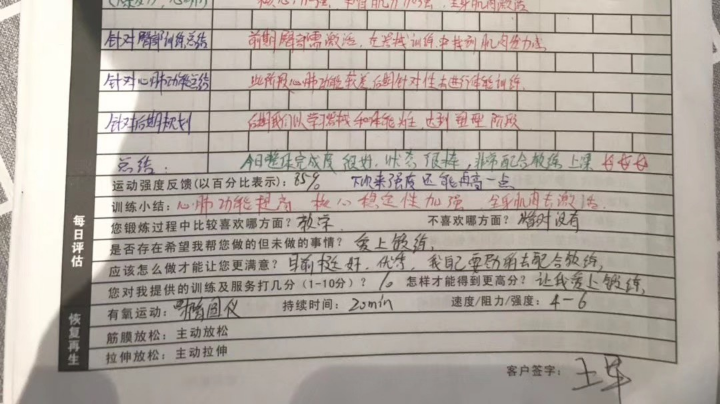 核心加强，臀部肌力加强，全身肌肉激活
针对臀部训练总结 前期臀部需激活，在器械训练中找到肌肉发力点
针对心肺功能总结 此阶段心肺功能较差后期针对性去进行体能训练
针对后期规划 后期我们以学习器械和体能为主 达到塑型阶段
总结 今日整体完成度很好，状态很棒，非常配合教练上课 棒棒棒
运动强度反馈(以百分比表示)：85% 下次来强度还能再高一点
训练小结：心肺功能提高 核心稳定性加强 全身肌肉去激活
您锻炼过程中比较喜欢哪方面？教学 不喜欢哪方面？暂时没有
是否存在希望我帮您做的但未做的事情？爱上锻炼
应该怎么做才能让您更满意？目前挺好，优秀，我自己要努力去配合教练
您对我提供的训练及服务打几分（1-10分）？10 怎样才能得到更高分？让我爱上锻炼
有氧运动：椭圆仪 持续时间：20min 速度/阻力/强度：4-6
筋膜放松：主动放松
拉伸放松：主动拉伸
每日评估
恢复再生
客户签字：王华